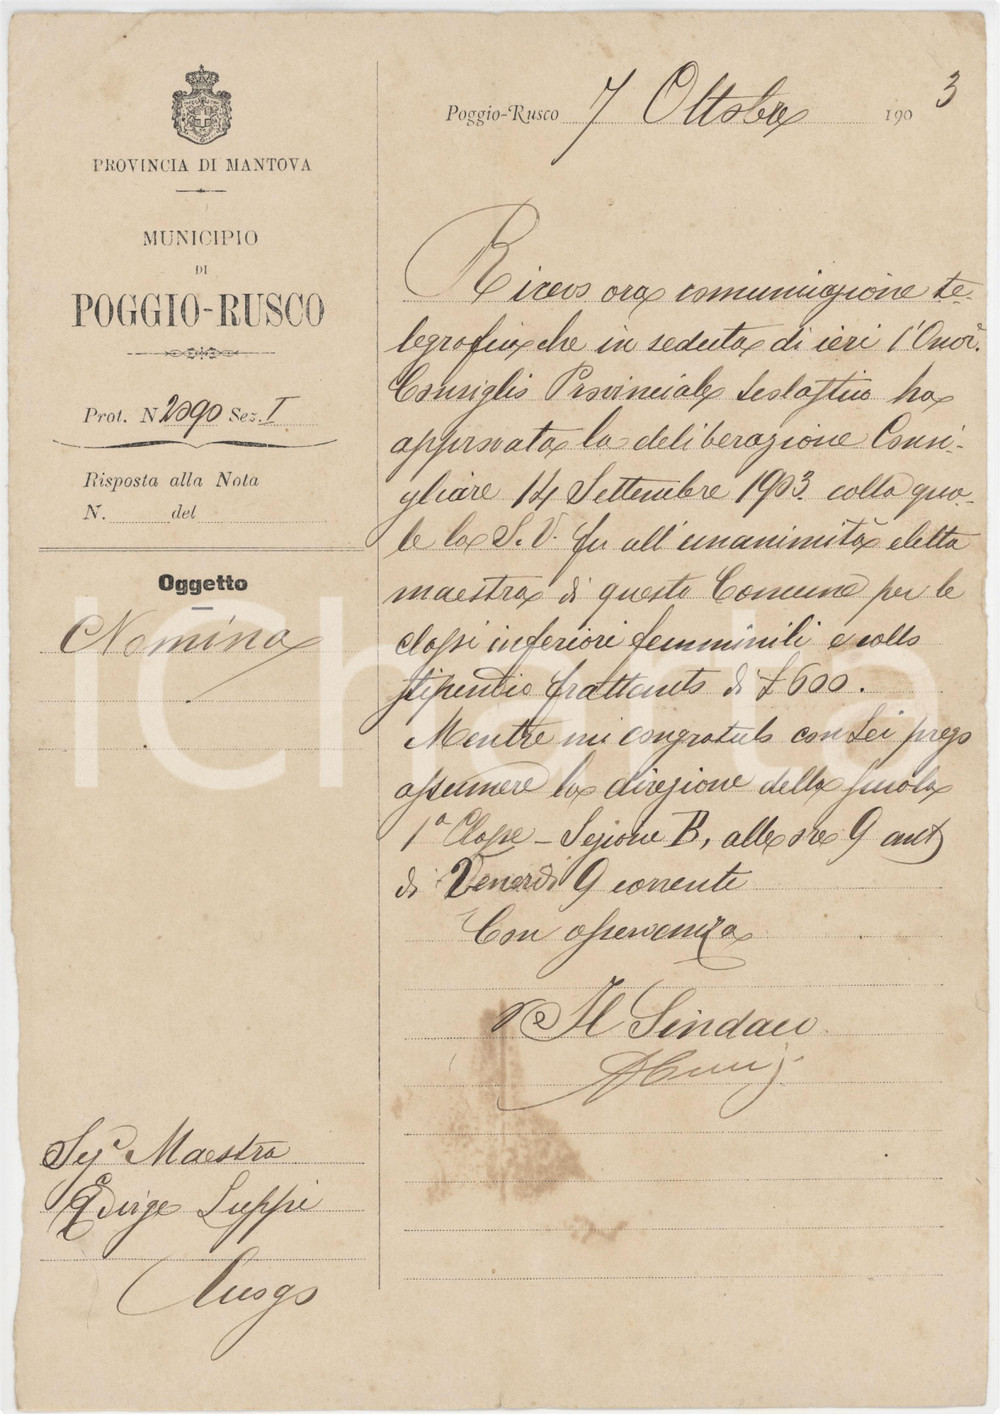 PROVINCIA DI MANTOVA
MUNICIPIO
DI
POGGIO-RUSCO
Prot. N 2090 Sez. I
Risposta alla Nota
N. del
Oggetto
Nomina
Poggio-Rusco 7 Ottobre 1903
Ricevo ora comunicazione te-
legrafica che in seduta di ieri l'Onor.
Consiglio Provinciale Scolastico ha
approvata la deliberazione Consi-
gliare 14 Settembre 1903 colla qua-
le la S. V. fu all'unanimità eletta
maestra di questo Comune per le
classi inferiori femminili e collo
stipendio frattanto di £ 600.
Mentre mi congratulo con Lei prego
assumere la direzione della scuola
1a Classe - Sezione B, alle ore 9 ant
di Venerdì 9 corrente
Con osservanza
Il Sindaco
Sig.a Maestra
Edvige Luppi
Luogo
iCharta